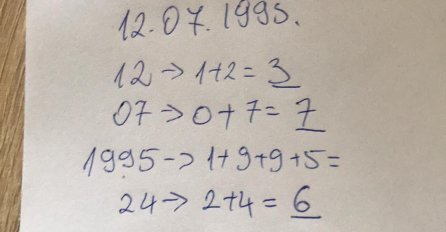 12.07.1995.
12 → 1+2 = 3
07 → 0+7 = 7
1995 → 1+9+9+5=
24 → 2+4 = 6